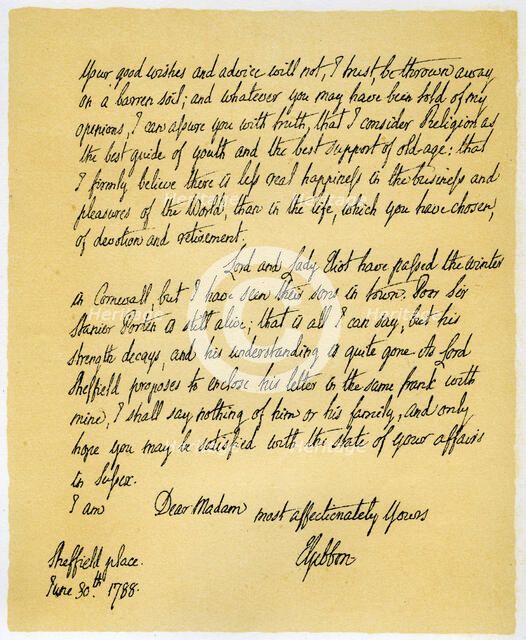 Your good wishes and advice will not, I trust, be thrown away
on a barren soil; and whatever you may have been told of my
opinions, I can assure you with truth, that I consider Religion as
the best guide of youth and the best support of old-age: that
I firmly believe there is less real happiness in the business and
pleasures of the World, than in the life, which you have chosen,
of devotion and retirement.
Lord and Lady Eliot have passed the winter
in Cornwall, but I have seen their sons in town. Poor Sir
Stanier Porten is still alive; that is all I can say, but his
strength decays, and his understanding is quite gone. As Lord
Sheffield proposes to enclose his letter in the same frank with
mine, I shall say nothing of him or his family, and only
hope you may be satisfied with the state of your affairs
in Sussex.
I am Dear Madam most affectionately Yours
EGibbon
Sheffield place.
June 30th. 1788.
Heritage
Heritage
Heritage
Heritage
Heritage
Heritage